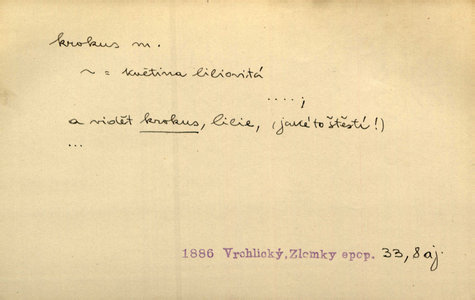 krokus m.
~ = květina liliovitá
.... ;
a vidět krokus, lilie, (jaké to štěstí!)
...
1886 Vrchlický, Zlomky epop. 33, 8 aj.